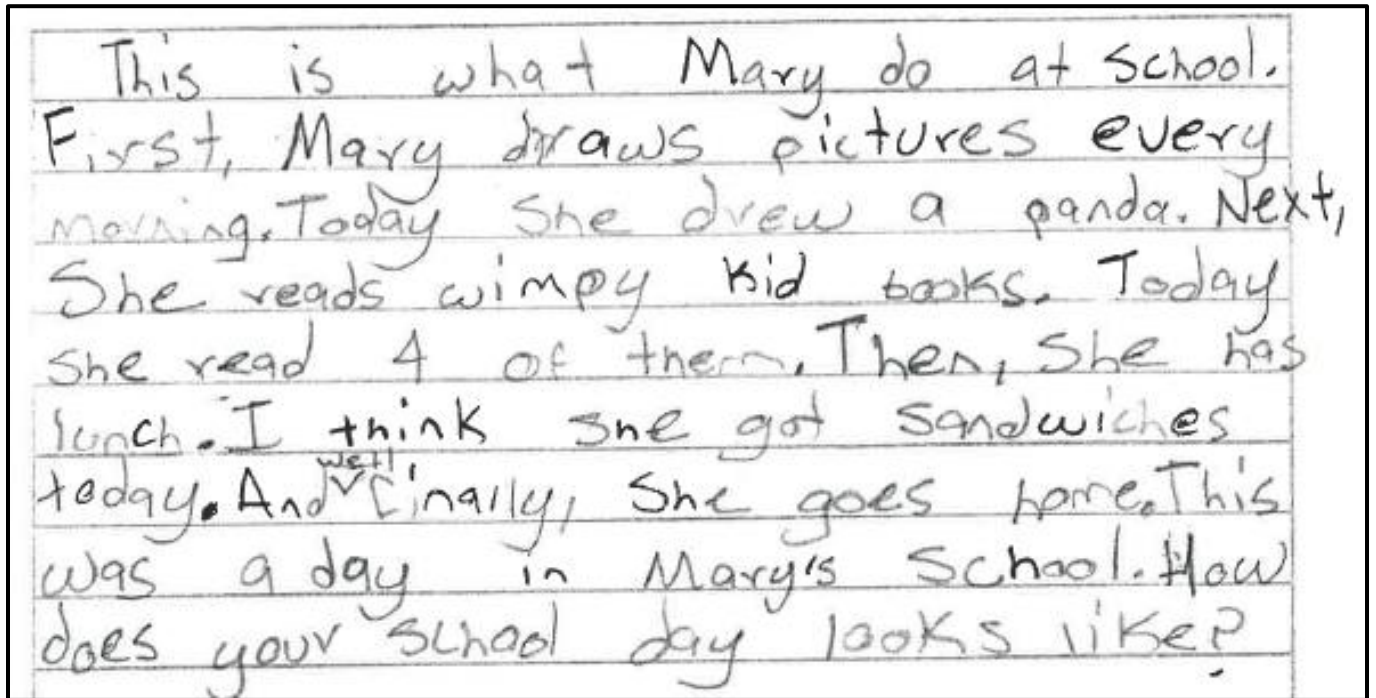 This is what Mary do at school.
First, Mary draws pictures every
morning. Today she drew a panda. Next,
She reads wimpy kid books. Today
she read 4 of them. Then, she has
lunch. I think she got sandwiches
today. And well finally, she goes home. This
was a day in Mary's school. How
does your school day looks like?